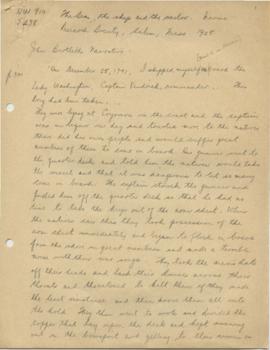 NW 910
The Sea, the ship and the sailor. Marine
Research Society, Salem, Mass 1925
John Bartlett Narrative
"On December 25, 1791, I shipped myself on board the
Lady Washington, Captain Kendrick, commander... This
log has been taken...
they was lying at Coyours on the coast and the captain
was in liquor one day and talked more to the natives
than did his own people and would suffer great
numbers of them to come on board. His gunner went to
the quarter deck and told him the natives would take
the vessel and that it was dangerous to let so many
come on board. The captain struck the gunner and
pushed him off the quarter deck so that he had no
time to take the keys out of the arm chest. When
the natives saw this they took possession of the
arm chest immediately and began to flock on board
from the shore in great numbers and made a terrible
noise with their war songs. They took the men's hats
off their heads and had their daggers across their
throats and threatened to kill them if they made
the least resistance and then drove them all into
the hold. They then went to work and divided the
copper that lay upon the deck and kept running
out on the bowsprit and yelling to them ashore in